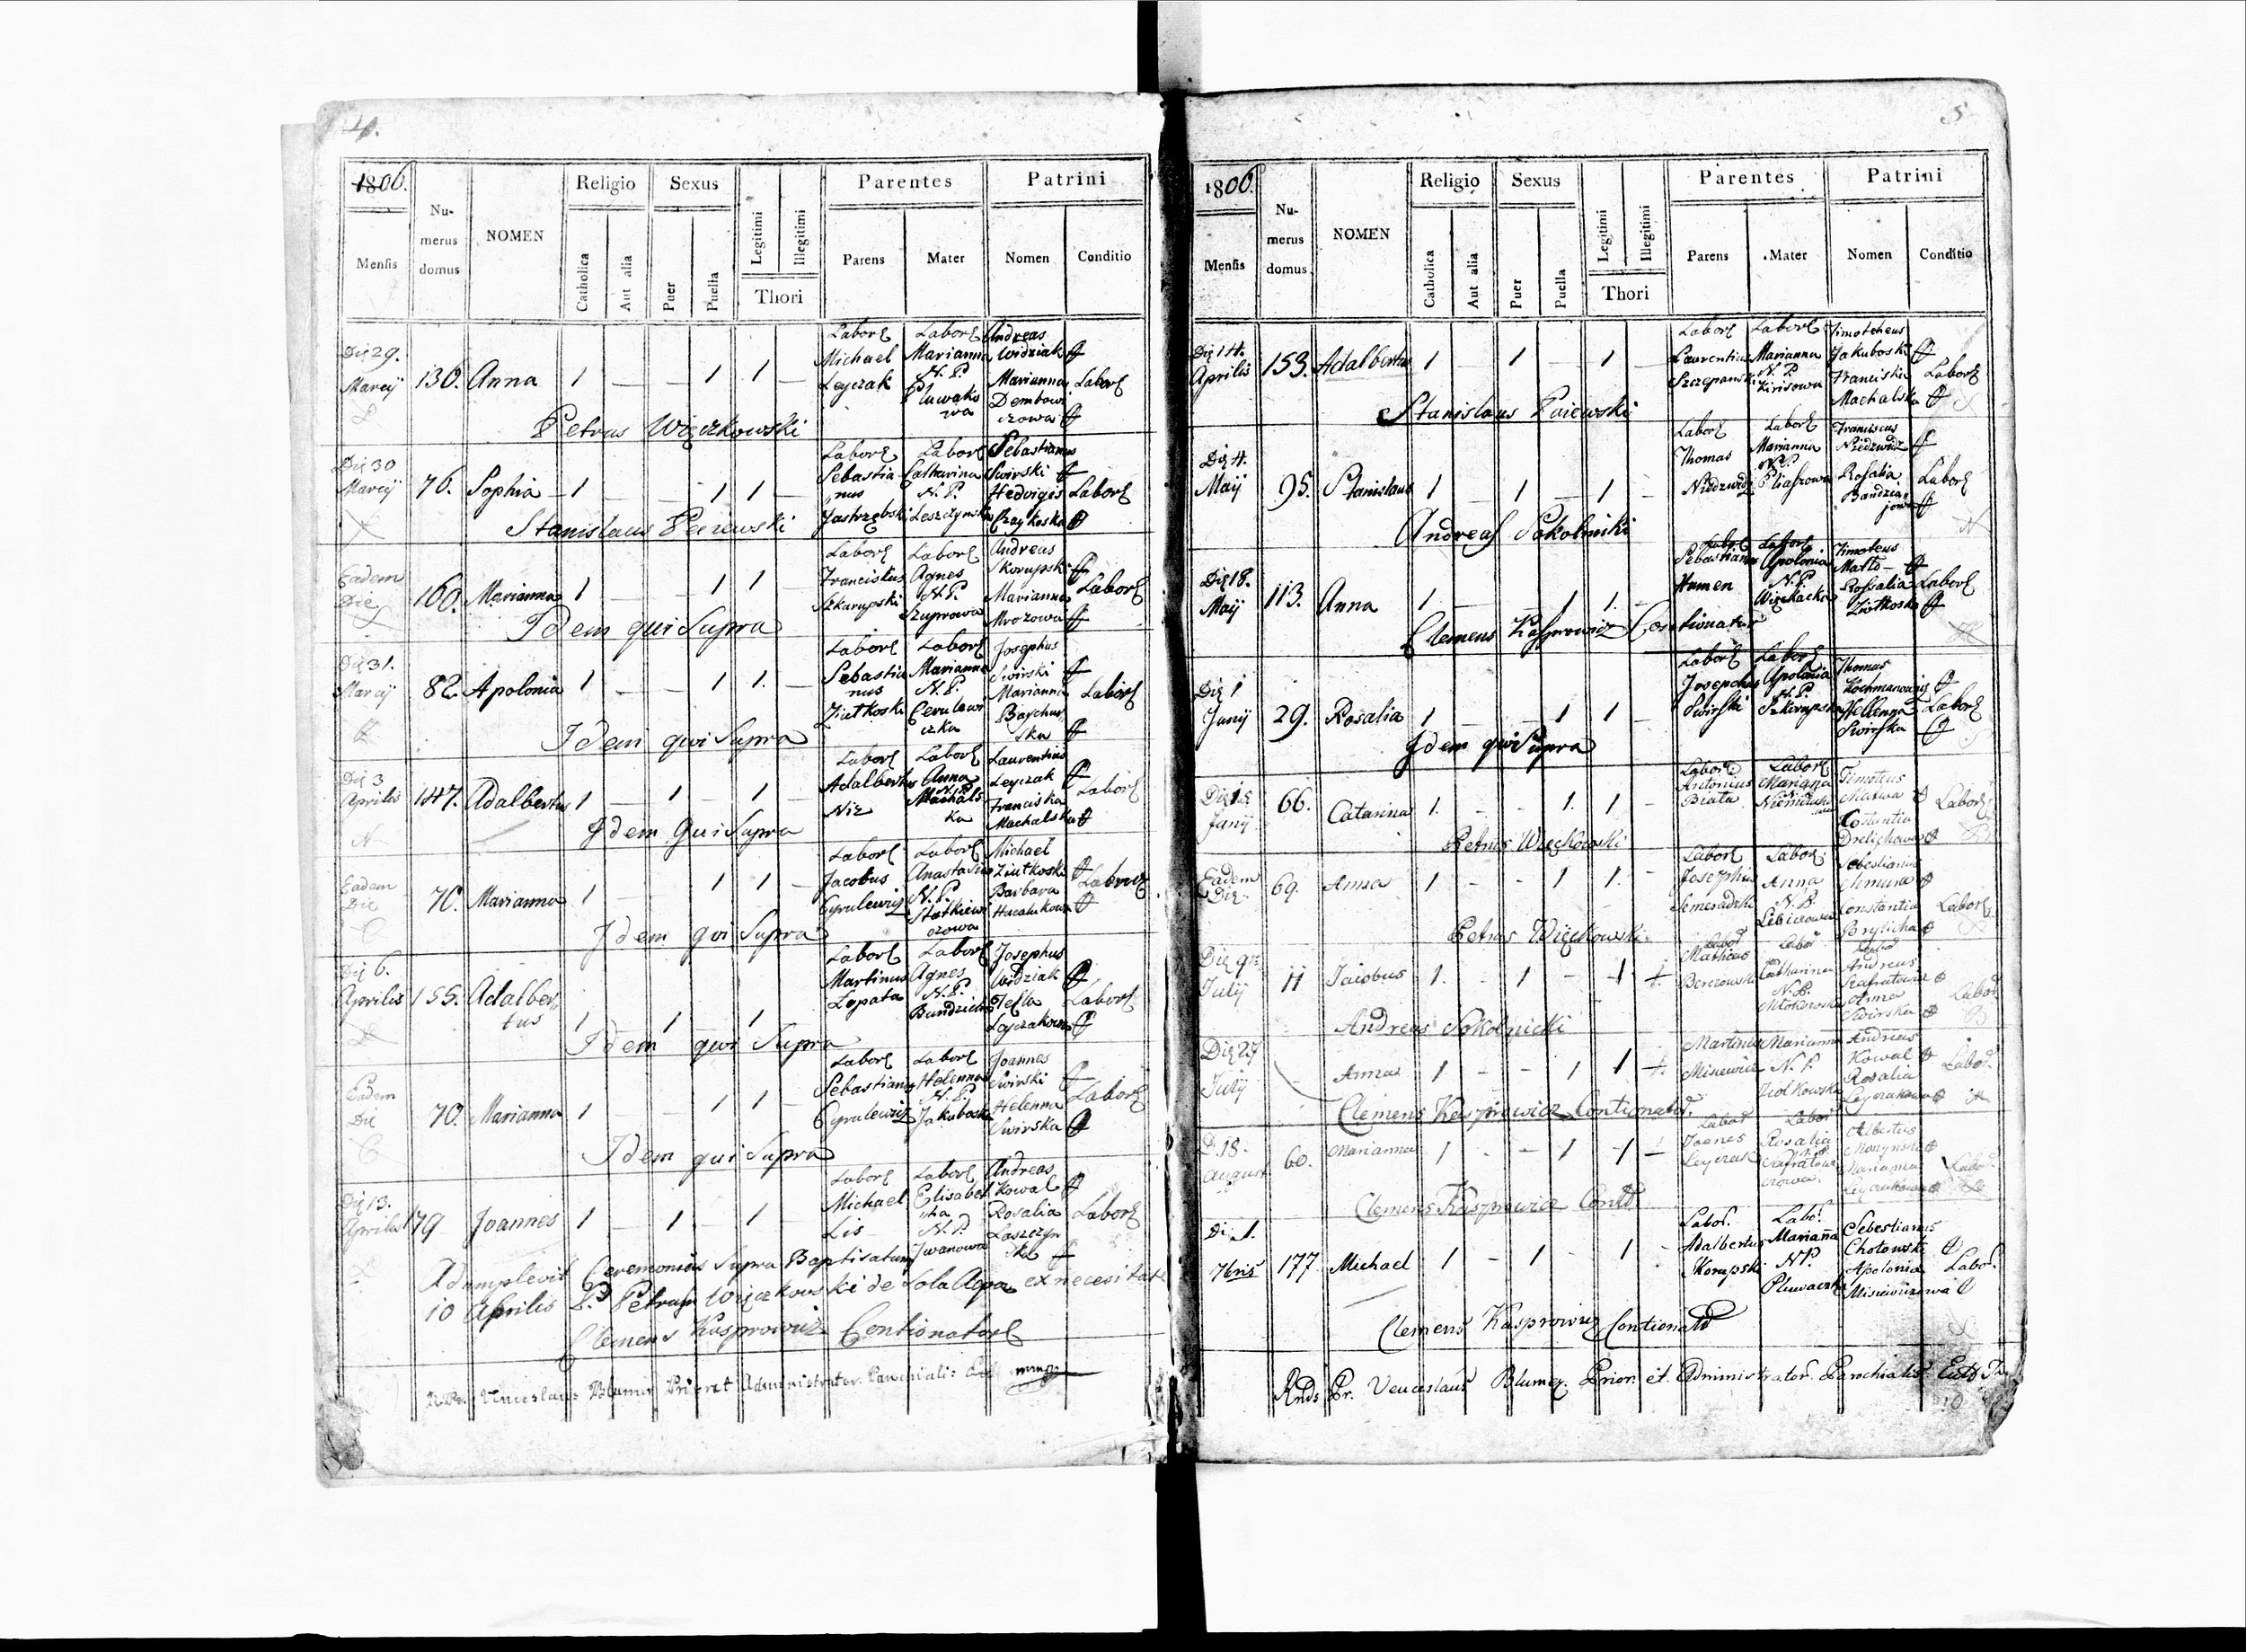 4.
1806.
Mensis
Nu-
merus
domus
NOMEN
Religio
Catholica
Aut alia
Sexus
Puer
Puella
Legitimi
Illegitimi
Thori
Parentes
Parens
Mater
Patrini
Nomen
Conditio
Die 29.
Marcij
130. Anna 1 — — 1 1
Labor
Michael
Leyczak
Labor
Marianna
N. P.
Andreas
Widziak
Marianna
Dembow
czowa
Labor
Petrus Więczkowski
Die 30
Marcij
76. Sophia 1 — — 1 1 —
Labor
Sebastia
nus
Jastrzębski
Labor
Catharina
N. P.
Leszczynska
Sebastianus
Swirski
Hedvigis
Czaykoska
Labor
Stanislaus
Eadem
Die
160. Marianna 1 — — 1 1
Labor
Franciskus
Szkarupski
Labor
Agnes
N. P.
Szuprowa
Andreas
Skorupski
Marianna
Mrozowa
Labor
Idem qui Supra
Die 31.
Marcij
82. Apolonia 1 — — 1 1.
Labor
Sebastia
nus
Ziutkoski
Labor
Marianna
N. P.
Cerulewi
czka
Josephus
Swirski
Marianna
Baychur
ska
Labor
Idem qui Supra
Die 3
Aprilis
147. Adalbertus 1 — 1 — 1
Labor
Adalbertus
Niz
Labor
Anna
N. P.
Machals
ka
Laurentius
Leyczak
Franciska
Machalska
Labor
Idem Qui Supra
Eadem
Die
70. Marianna 1 — 1 1 —
Labor
Jacobus
Cyrulewiz
Labor
Anastasia
N. P.
Statkiewi
czowa
Michael
Ziutkoski
Barbara
Labor
Idem qui Supra
Die 6.
Aprilis
155. Adalber
tus 1 1 1
Labor
Martinus
Lopata
Labor
Agnes
N. P.
Josephus
Widziak
Tesla
Lejczakowa
Labor
Idem qui Supra
Eadem
Die
70. Marianna 1 — — 1 1 —
Labor
Sebastianus
Cyrulewiz
Labor
Helenna
N. P.
Jakuboska
Joannes
Swirski
Helenna
Swirska
Labor
Idem qui Supra
Die 13.
Aprilis
179 Joannes 1 — 1 — 1
Labor
Michael
Lis
Labor
Elisabet
ha
N. P.
Iwanowa
Andreas
Kowal
Rosalia
Laszczyn
ska
Labor
Adimplevit Ceremonias Supra Baptisatum
10 Aprilis P. Petrum Więczkowski de Sola Aqua ex necesitate
Clemens Kasprowicz Contionator
Venceslaus Blumer Prior et Administrator Parochialis
5
1806.
Mensis
Nu-
merus
domus
NOMEN
Religio
Catholica
Aut alia
Sexus
Puer
Puella
Legitimi
Illegitimi
Thori
Parentes
Parens
Mater
Patrini
Nomen
Conditio
Die 14.
Aprilis
153. Adalbertus 1 — 1 — 1 —
Labor
Laurentius
Szczepanski
Labor
Marianna
N. P.
Kirisowa
Timotcheus
Jakuboski
Franciska
Machalska
Labor
Stanislaus
Die 4.
Maij
95. Stanislaus 1 — 1 — 1 —
Labor
Thomas
Labor
Marianna
N. P.
Franciscus
Rosalia
Labor
Andreas Sokolniki
Die 18.
Maij
113. Anna 1 — — 1 1. —
Labor
Sebastianus
Hamen
Labor
Apolonia
N. P.
Timoteus
Rossalia
Ziutkoska
Labor
Clemens Kasprowicz Contionator
Die 1
Junij
29. Rosalia 1 — — 1 1 —
Labor
Josephus
Swirski
Labor
Apolonia
N. P.
Szkorupska
Thomas
Kochmanowicz
Hellenna
Swirska
Labor
Idem qui Supra
Junij
66. Catarina 1. - - 1. 1 -
Labor
Antonius
Biata
Labor
Marianna
N. P.
Timoteus
Matwa
Costantia
Drelichowa
Labor
Petrus Więckowski
Eadem
Die
69. Anna 1 - - 1 1. -
Labor
Josephus
Semeradzki
Labor
Anna
N. P.
Sebestianus
Chmura
Constantia
Brylicha
Labor
Petrus Więckowski
July
11 Jacobus 1. - 1 - 1
Labor
Matheus
Berezowski
Labor
Catharina
N. P.
Andreas
Anna
Swirska
Labor
Andreas Sokolnicki
Die 27
July
Anna 1 - - 1 1
Martinus
Misiewicz
Marianna
N. P.
Ziolkowska
Andreas
Kowal
Rosalia
Leyczakowa
Labor.
Clemens Kasprowicz Contionator.
D. 18.
August
60. Marianna 1 - - 1 1 -
Labor
Joenes
Leyczak
Labor
Rosalia
Albertus
Marianna
Labor.
Clemens Kasprowicz Cont
Die 1.
7bris
177. Michael 1 - 1 - 1 -
Labor.
Adalbertus
Skorupski
Labor.
Marianna
N P.
Pluwaczka
Sebestianus
Chotowski
Apolonia
Misiewiczowa
Labor.
Clemens Kasprowicz Contionator
Rnds Pr. Venceslaus Blumer. Prior et Administrator. Parochialis